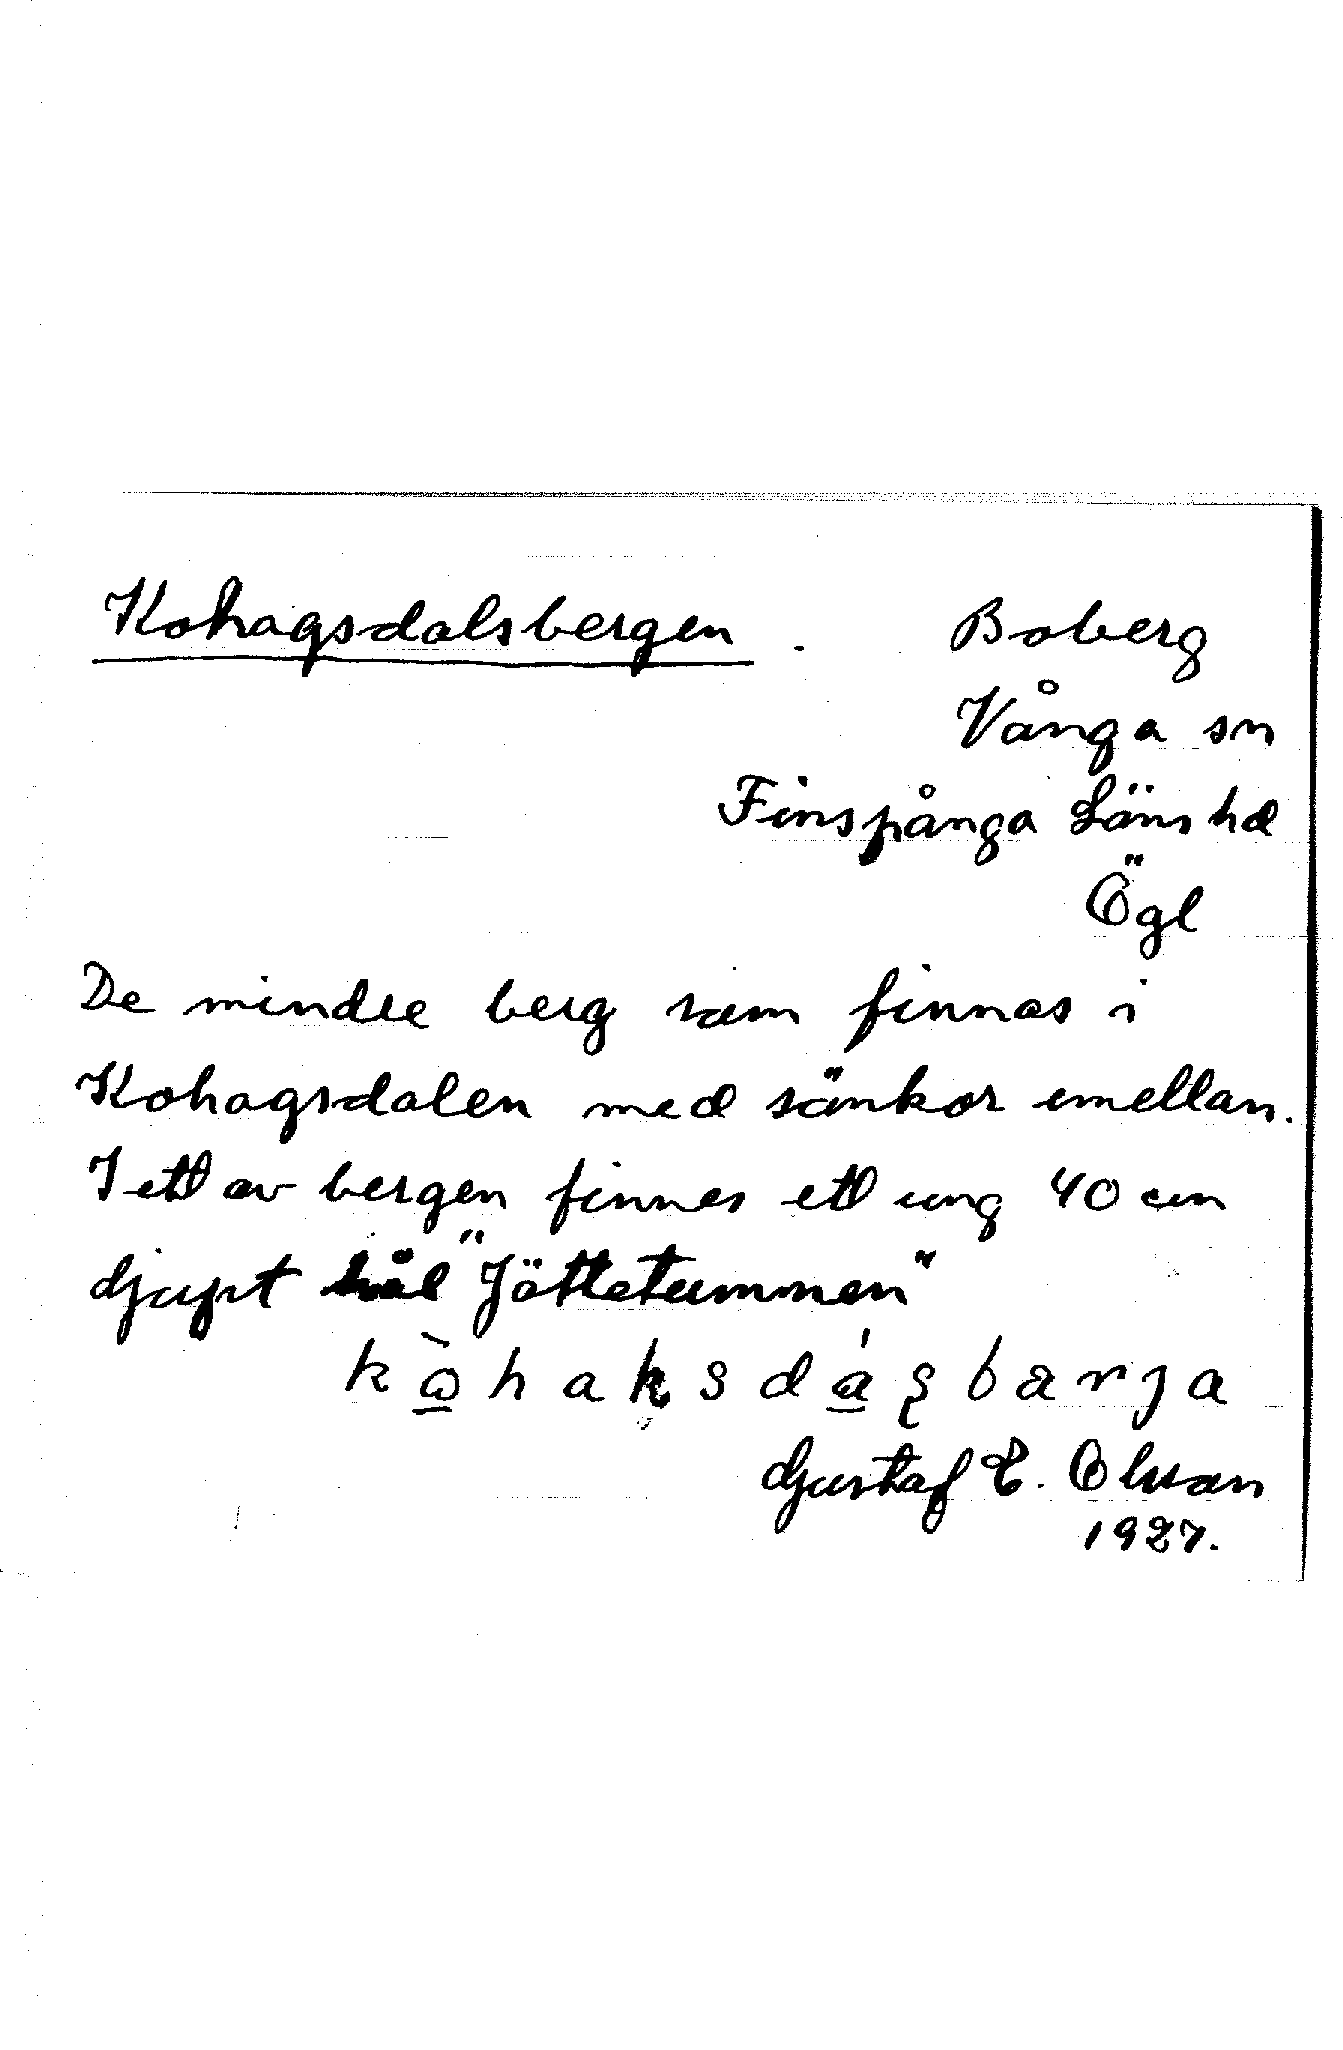 Kohagsdalsbergen. Boberg
Vånga sn
Finspånga Läns hd
Ögl
De mindre berg som finnas i
Kohagsdalen med sänkor emellan.
I ett av bergen finnes ett ung 40 cm
djupt hål "Jöttetummen"
Gustaf E. Olsson
1927.